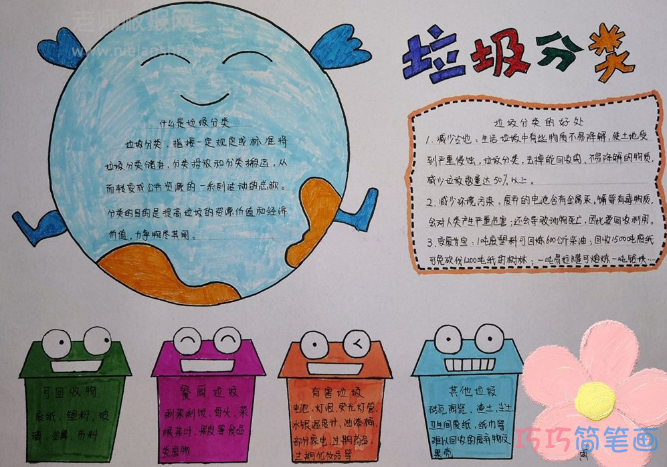 垃圾分类
什么是垃圾分类
垃圾分类,指按一定规定或标准将
垃圾分类储存,分类投放和分类搬运,从
而转变成公共资源的一系列活动的总称。
分类的目的是提高垃圾的资源价值和经济
价值,力争物尽其用。
垃圾分类的好处
1. 减少占地:生活垃圾中有些物质不易降解,使土地受
到严重侵蚀,垃圾分类,去掉能回收的,不易降解的物质,
减少垃圾数量达50%以上。
2. 减少环境污染,废弃的电池含有金属汞,镉等有毒物质,
会对人类产生严重危害;
3. 变废为宝:1吨废塑料可回炼600公斤柴油;回收1500吨废纸
可免砍伐1200吨纸的树林;
可回收物
餐厨垃圾
剩菜剩饭、骨头、菜
根菜叶、果皮等食品
类废物
有害垃圾
电池、灯泡、荧光灯管
水银温度计、油漆桶
部分家电、过期药品、
过期化妆品等
其他垃圾
砖瓦陶瓷、渣土、尘土
卫生间废纸、纸巾等
难以回收的废弃物及
果壳
巧巧简笔画